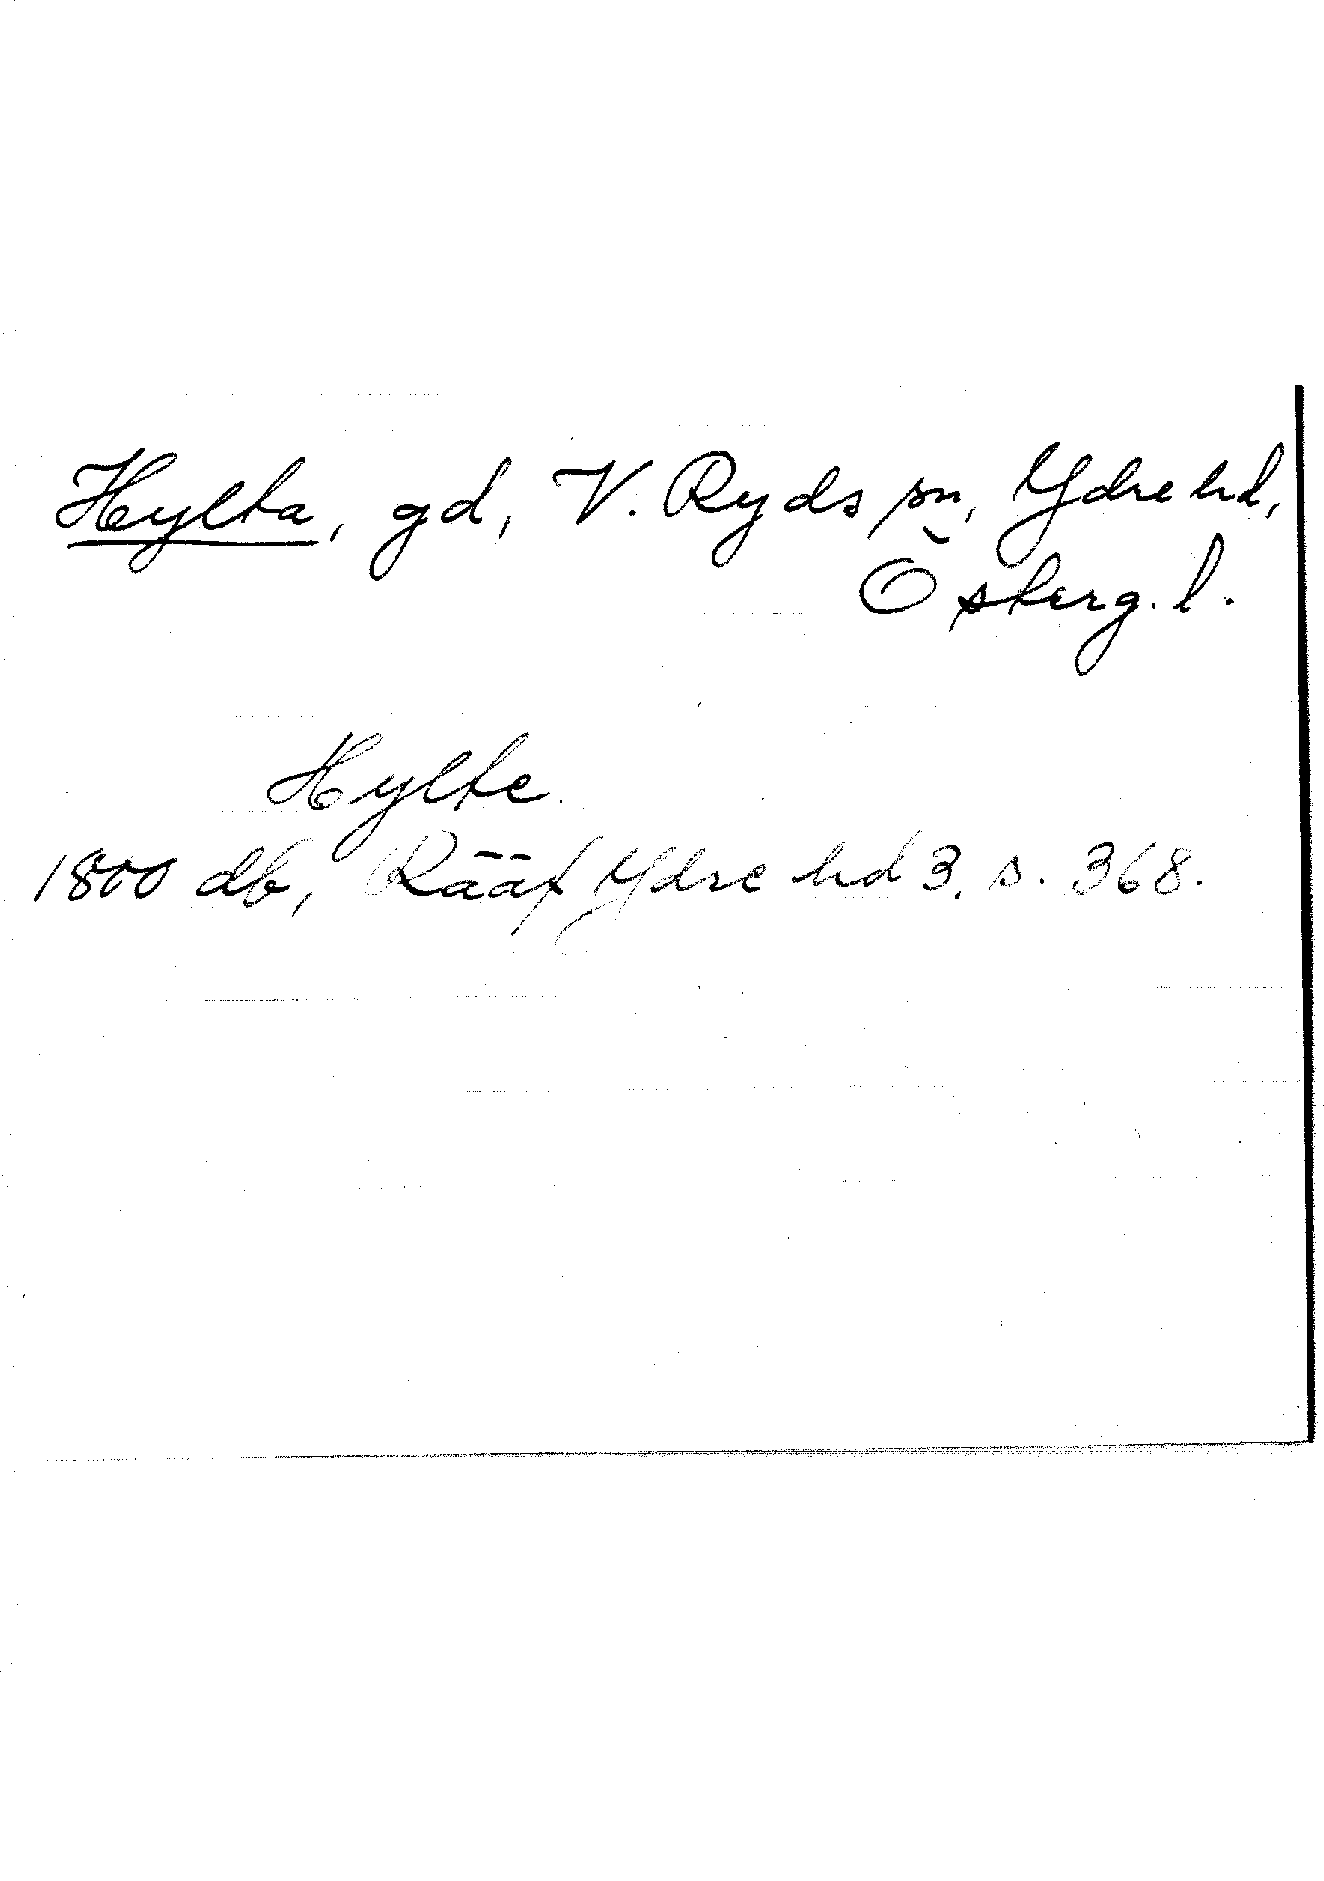 Hylta, gd, V. Ryds sn, Ydre hd,
Östergl.
Hylte
1800 db, Rääf Ydre hd 3, s. 368.